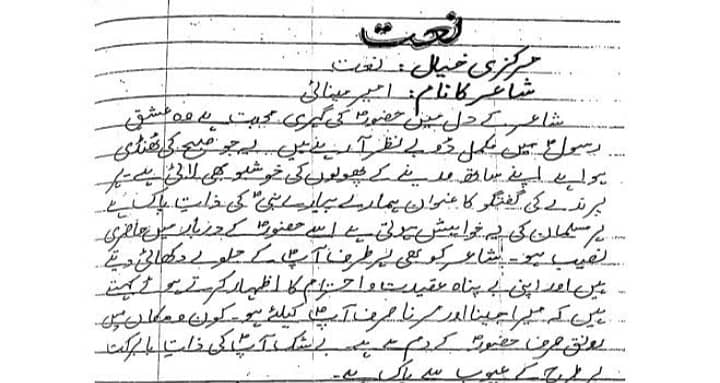 نعت
مرکزی خیال: نعت
شاعر کا نام: امیر مینائی
شاعر کے دل میں حضورؐ کی گہری محبت ہے وہ عشق
رسولؐ میں مکمل ڈوبے نظر آ رہے ہیں یے جو صبح کی ٹھنڈی
ہوا ہے اپنے ساتھ مدینے کے پھولوں کی خوشبو بھی لائی ہے ہر
پرندے کی گفتگو کا عنوان ہمارے پیارے نبیؐ کی ذات پاک ہے
ہر مسلمان کی یے خواہیش ہوتی ہے اسے حضورؐ کے دربار میں حاضری
نصیب ہو۔ شاعر کو بھی ہر طرف آپؐ کے جلوے دکھائی دیتے
ہیں اور اپنی بے پناہ عقیدت و احترام کا اظہار کرتے ہوئے کہتے
ہیں کہ میرا جینا اور مرنا صرف آپؐ کیلئے ہو۔ کون و مکاں میں
رونق صرف حضورؐ کے دم سے ہے۔ بے شک آپؐ کی ذات با برکت
ہر طرح کے عیوب سے پاک ہے۔